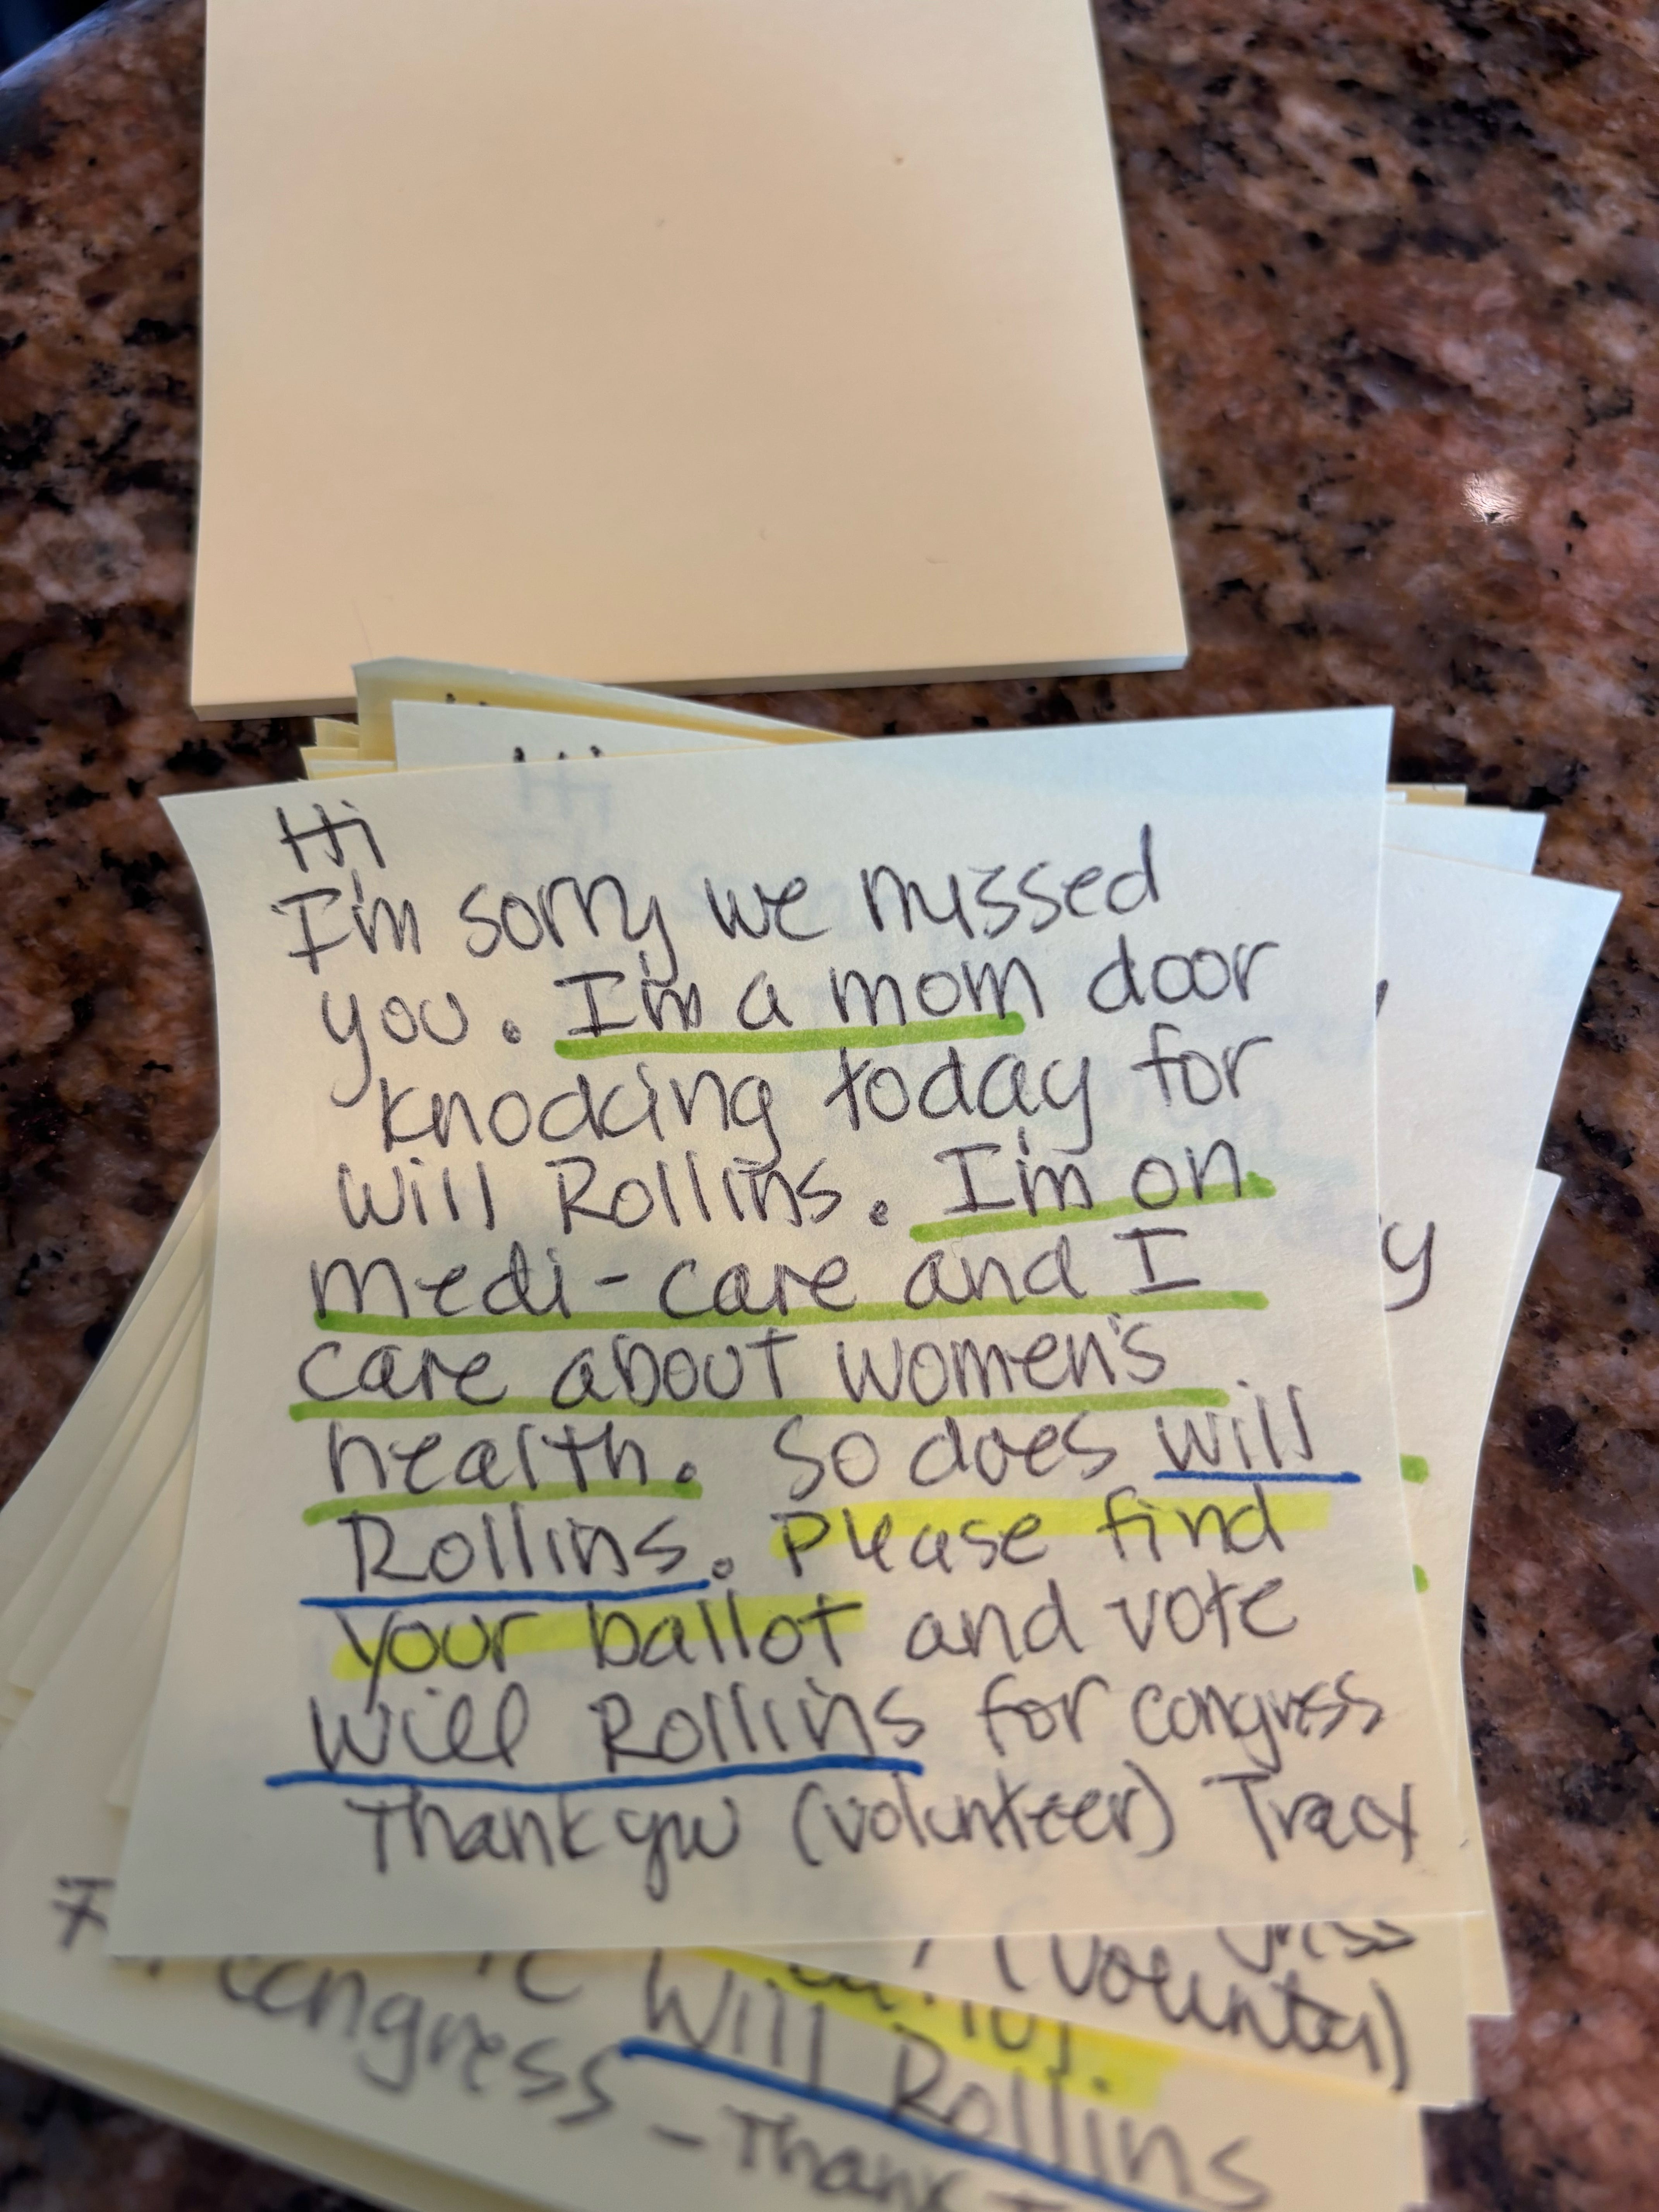 Hi
I'm sorry we missed
you. I'm a mom door
knocking today for
Will Rollins. I'm on
medi-care and I
care about women's
health. So does Will
Rollins. Please find
your ballot and vote
Will Rollins for congress
Thank you (volunteer) Tracy
Hi
y
(volunteer)
Will Rollins
congress - Thank